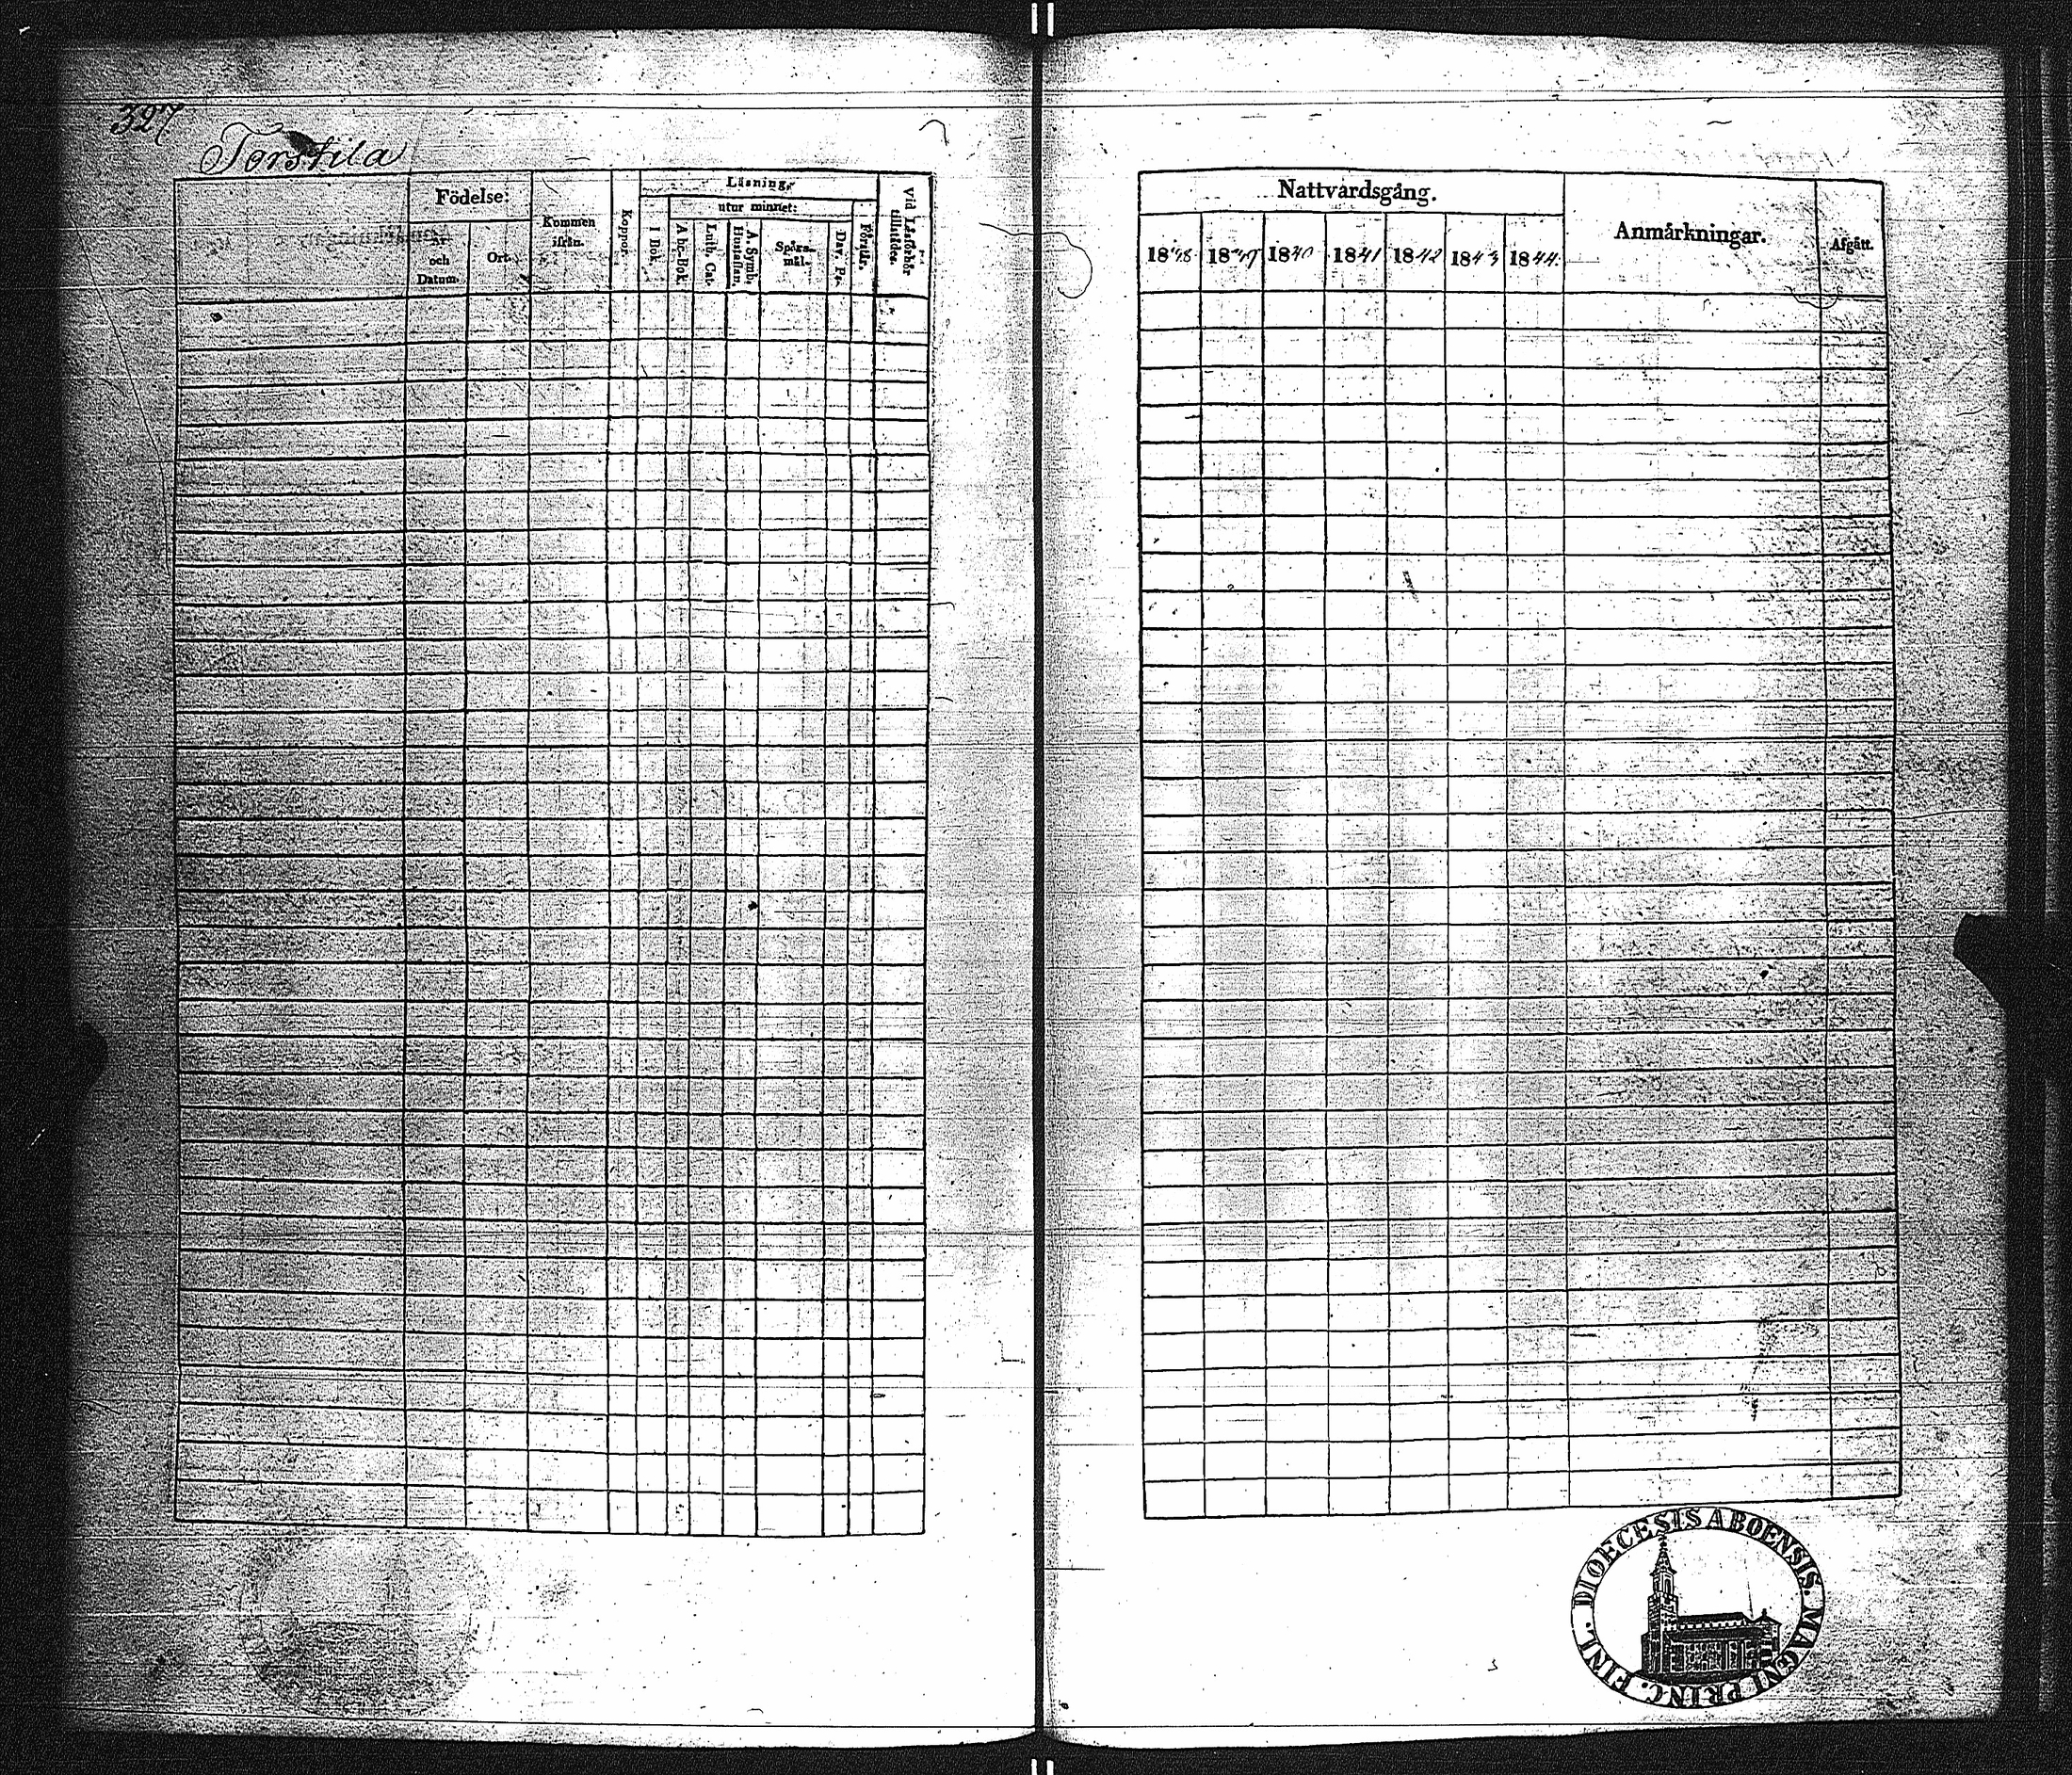 327
Torstila
Födelse:
År och Datum.
Ort.
Kommen ifrån.
Koppor.
Läsning.
I Bok.
utur minnet:
A bc-Bok.
Luth. Cat.
A. Symb. Hustaflan.
Spörsmål.
Dav. Ps.
Förstår.
Vid Läsförhör tillstädes.
Nattvardsgång.
1840 1841 1842 1843 1844.
Anmärkningar.
Afgått.
DIOECESIS ABOENSIS. MAGNI PRINC. FINL.